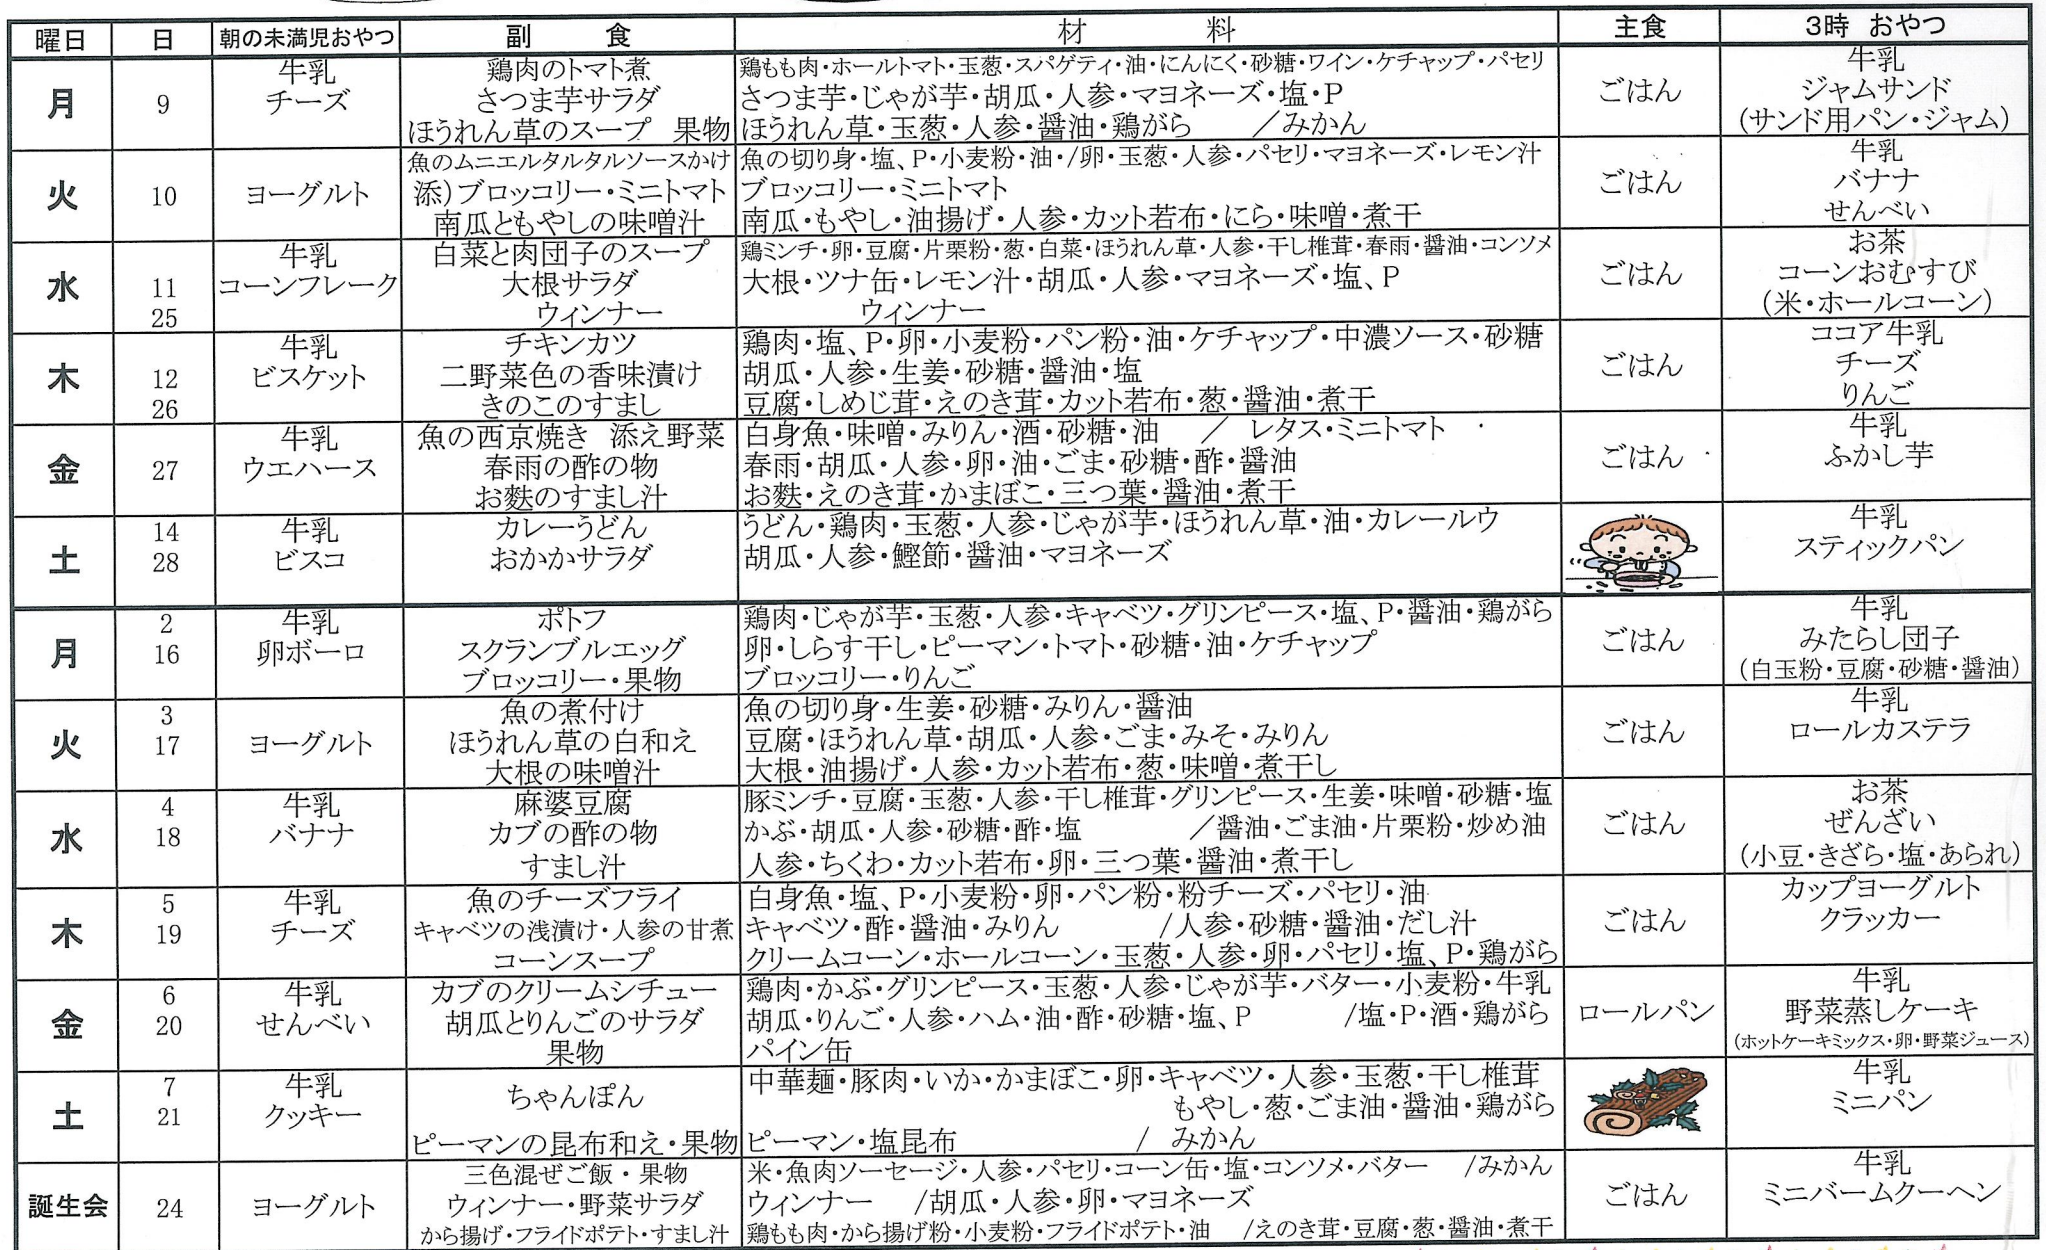 曜日 日 朝の未満児おやつ 副 食 材 料 主食 3時 おやつ
月 9
牛乳
チーズ
鶏肉のトマト煮
さつま芋サラダ
ほうれん草のスープ 果物
鶏もも肉・ホールトマト・玉葱・スパゲティ・油・にんにく・砂糖・ワイン・ケチャップ・パセリ
さつま芋・じゃが芋・胡瓜・人参・マヨネーズ・塩・P
ほうれん草・玉葱・人参・醤油・鶏がら /みかん
ごはん
牛乳
ジャムサンド
(サンド用パン・ジャム)
火 10
ヨーグルト
魚のムニエルタルタルソースかけ
添)ブロッコリー・ミニトマト
南瓜ともやしの味噌汁
魚の切り身・塩、P・小麦粉・油・/卵・玉葱・人参・パセリ・マヨネーズ・レモン汁
ブロッコリー・ミニトマト
南瓜・もやし・油揚げ・人参・カット若布・にら・味噌・煮干
ごはん
牛乳
バナナ
せんべい
水 11
25
牛乳
コーンフレーク
白菜と肉団子のスープ
大根サラダ
ウィンナー
鶏ミンチ・卵・豆腐・片栗粉・葱・白菜・ほうれん草・人参・干し椎茸・春雨・醤油・コンソメ
大根・ツナ缶・レモン汁・胡瓜・人参・マヨネーズ・塩、P
ウィンナー
ごはん
お茶
コーンおむすび
(米・ホールコーン)
木 12
26
牛乳
ビスケット
チキンカツ
二野菜色の香味漬け
きのこのすまし
鶏肉・塩、P・卵・小麦粉・パン粉・油・ケチャップ・中濃ソース・砂糖
胡瓜・人参・生姜・砂糖・醤油・塩
豆腐・しめじ茸・えのき茸・カット若布・葱・醤油・煮干
ごはん
ココア牛乳
チーズ
りんご
金 27
牛乳
ウエハース
魚の西京焼き 添え野菜
春雨の酢の物
お麩のすまし汁
白身魚・味噌・みりん・酒・砂糖・油 / レタス・ミニトマト
春雨・胡瓜・人参・卵・油・ごま・砂糖・酢・醤油
お麩・えのき茸・かまぼこ・三つ葉・醤油・煮干
ごはん
牛乳
ふかし芋
土 14
28
牛乳
ビスコ
カレーうどん
おかかサラダ
うどん・鶏肉・玉葱・人参・じゃが芋・ほうれん草・油・カレールウ
胡瓜・人参・鰹節・醤油・マヨネーズ
牛乳
スティックパン
月 2
16
牛乳
卵ボーロ
ポトフ
スクランブルエッグ
ブロッコリー・果物
鶏肉・じゃが芋・玉葱・人参・キャベツ・グリンピース・塩、P・醤油・鶏がら
卵・しらす干し・ピーマン・トマト・砂糖・油・ケチャップ
ブロッコリー・りんご
ごはん
牛乳
みたらし団子
(白玉粉・豆腐・砂糖・醤油)
火 3
17
ヨーグルト
魚の煮付け
ほうれん草の白和え
大根の味噌汁
魚の切り身・生姜・砂糖・みりん・醤油
豆腐・ほうれん草・胡瓜・人参・ごま・みそ・みりん
大根・油揚げ・人参・カット若布・葱・味噌・煮干し
ごはん
牛乳
ロールカステラ
水 4
18
牛乳
バナナ
麻婆豆腐
カブの酢の物
すまし汁
豚ミンチ・豆腐・玉葱・人参・干し椎茸・グリンピース・生姜・味噌・砂糖・塩
かぶ・胡瓜・人参・砂糖・酢・塩 /醤油・ごま油・片栗粉・炒め油
人参・ちくわ・カット若布・卵・三つ葉・醤油・煮干し
ごはん
お茶
ぜんざい
(小豆・きざら・塩・あられ)
木 5
19
牛乳
チーズ
魚のチーズフライ
キャベツの浅漬け・人参の甘煮
コーンスープ
白身魚・塩、P・小麦粉・卵・パン粉・粉チーズ・パセリ・油
キャベツ・酢・醤油・みりん /人参・砂糖・醤油・だし汁
クリームコーン・ホールコーン・玉葱・人参・卵・パセリ・塩、P・鶏がら
ごはん
カップヨーグルト
クラッカー
金 6
20
牛乳
せんべい
カブのクリームシチュー
胡瓜とりんごのサラダ
果物
鶏肉・かぶ・グリンピース・玉葱・人参・じゃが芋・バター・小麦粉・牛乳
胡瓜・りんご・人参・ハム・油・酢・砂糖・塩、P /塩・P・酒・鶏がら
パイン缶
ロールパン
牛乳
野菜蒸しケーキ
(ホットケーキミックス・卵・野菜ジュース)
土 7
21
牛乳
クッキー
ちゃんぽん
ピーマンの昆布和え・果物
中華麺・豚肉・いか・かまぼこ・卵・キャベツ・人参・玉葱・干し椎茸
もやし・葱・ごま油・醤油・鶏がら
ピーマン・塩昆布 / みかん
牛乳
ミニパン
誕生会 24
ヨーグルト
三色混ぜご飯・果物
ウィンナー・野菜サラダ
から揚げ・フライドポテト・すまし汁
米・魚肉ソーセージ・人参・パセリ・コーン缶・塩・コンソメ・バター /みかん
ウィンナー /胡瓜・人参・卵・マヨネーズ
鶏もも肉・から揚げ粉・小麦粉・フライドポテト・油 /えのき茸・豆腐・葱・醤油・煮干
ごはん
牛乳
ミニバームクーヘン